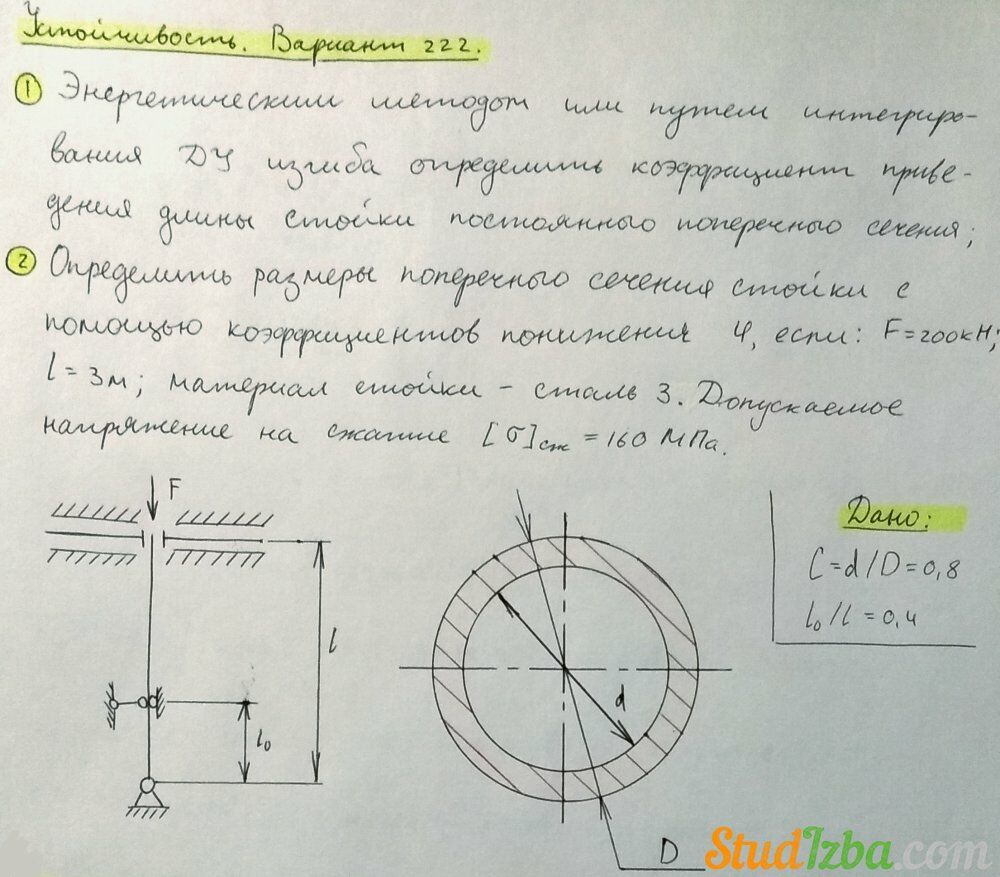 Устойчивость. Вариант 222.
1 Энергетическим методом или путем интегриро-
вания ДУ изгиба определить коэффициент приве-
дения длины стойки постоянного поперечного сечения;
2 Определить размеры поперечного сечения стойки с
помощью коэффициентов понижения φ, если: F=200кН;
l=3м; материал стойки - сталь 3. Допускаемое
напряжение на сжатие [σ]сж = 160 МПа.
F
l
l₀
d
D
Дано:
C=d/D=0,8
l₀/l=0,4
StudIzba.com